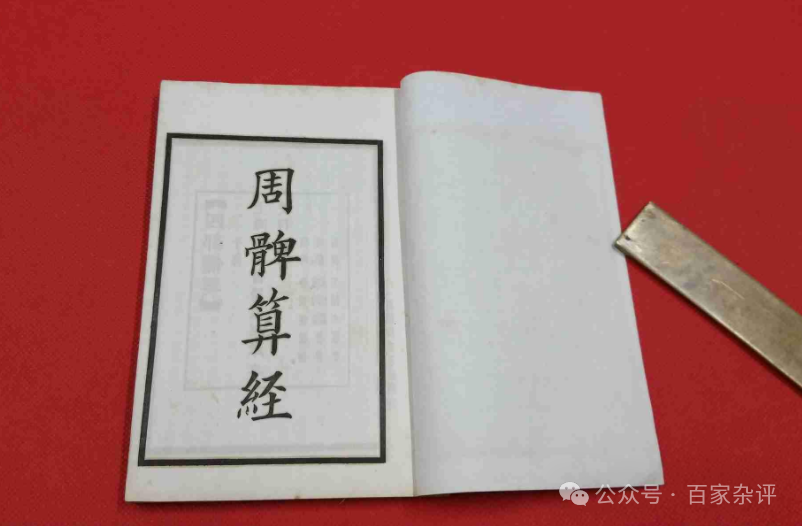 周髀算経
公众号 · 百家杂评